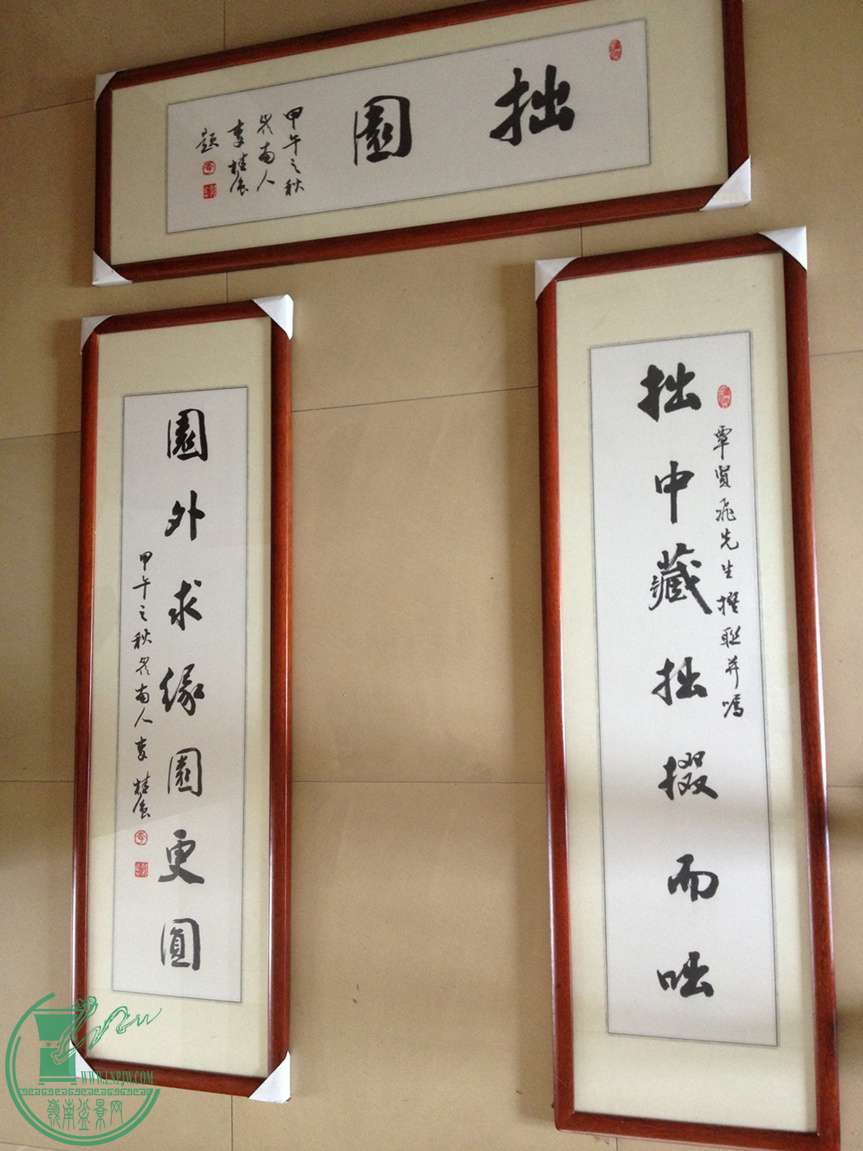 拙園
甲午之秋
南人
李桂
題
拙中藏拙掇而咄
覃賢飛先生撰联并嘱
園外求缘園更圓
甲午之秋 南人李桂
WWW.LNPJW.COM
嶺南盆景网